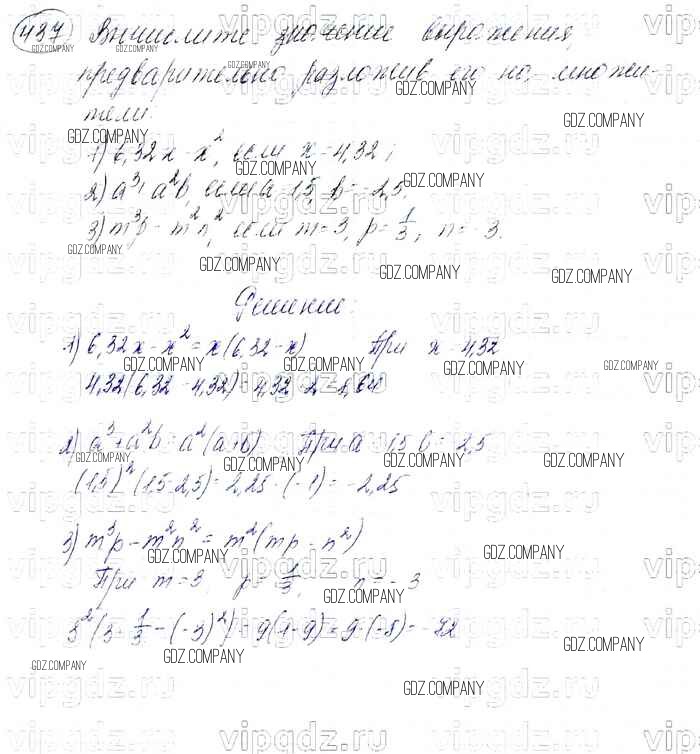 437) Вычислите значение выражения,
предварительно разложив его на множи-
тели.
1) 6,32x - x², если x = 4,32;
2) a³ + a²b, если a = 1,5, b = -2,5;
3) m³p - m²n², если m = 3, p = 1/3, n = -3.
Решение:
1) 6,32x - x² = x(6,32 - x) При x = 4,32
4,32(6,32 - 4,32) = 4,32 · 2 = 8,64
2) a³ + a²b = a²(a+b) При a = 1,5 b = -2,5
(1,5)²(1,5-2,5) = 2,25 · (-1) = -2,25
3) m³p - m²n² = m²(mp - n²)
При m = 3, p = 1/3, n = -3
3²(3 · 1/3 - (-3)²) = 9(1-9) = 9 · (-8) = -72
GDZ.COMPANY
vipgdz.ru